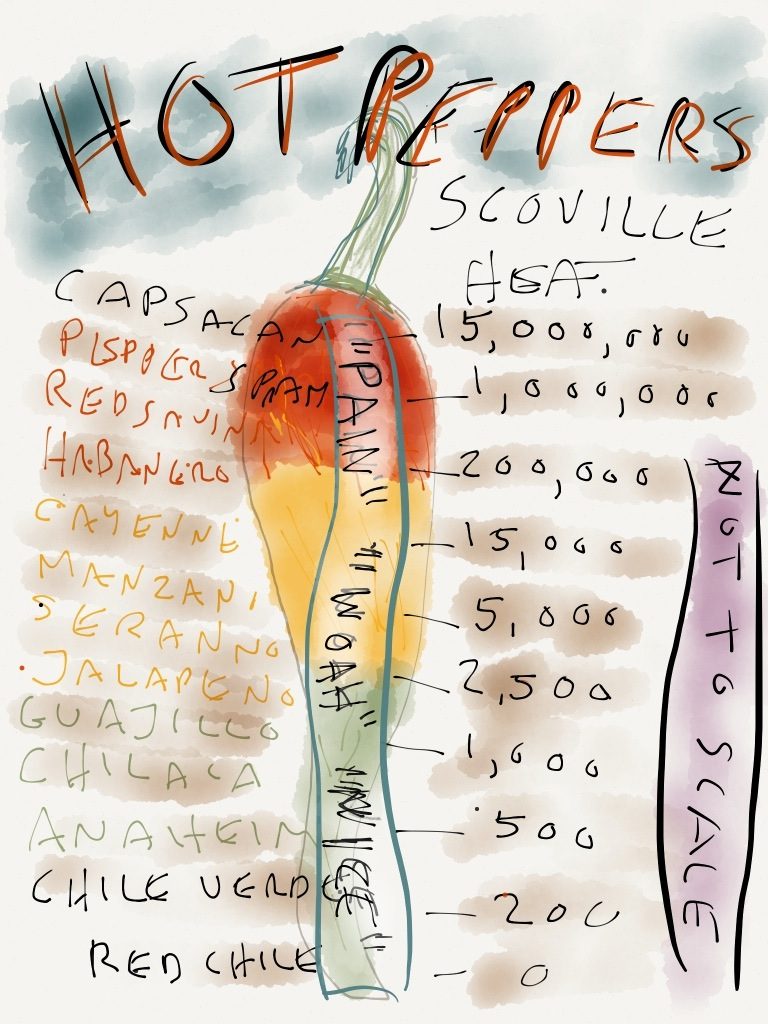 HOT PEPPERS
SCOVILLE
HEAT.
CAPSACAN
PESPPER SPRAM
RED SAVINA
HABANERO
CAYENNE
MANZANI
SERANNO
JALAPENO
GUAJILLO
CHILACA
ANAHEIM
CHILE VERDE
RED CHILE
"PAIN"
"WOAH"
"NICE"
15,000,000
1,000,000
200,000
15,000
5,000
2,500
1,000
500
200
0
NOT TO SCALE